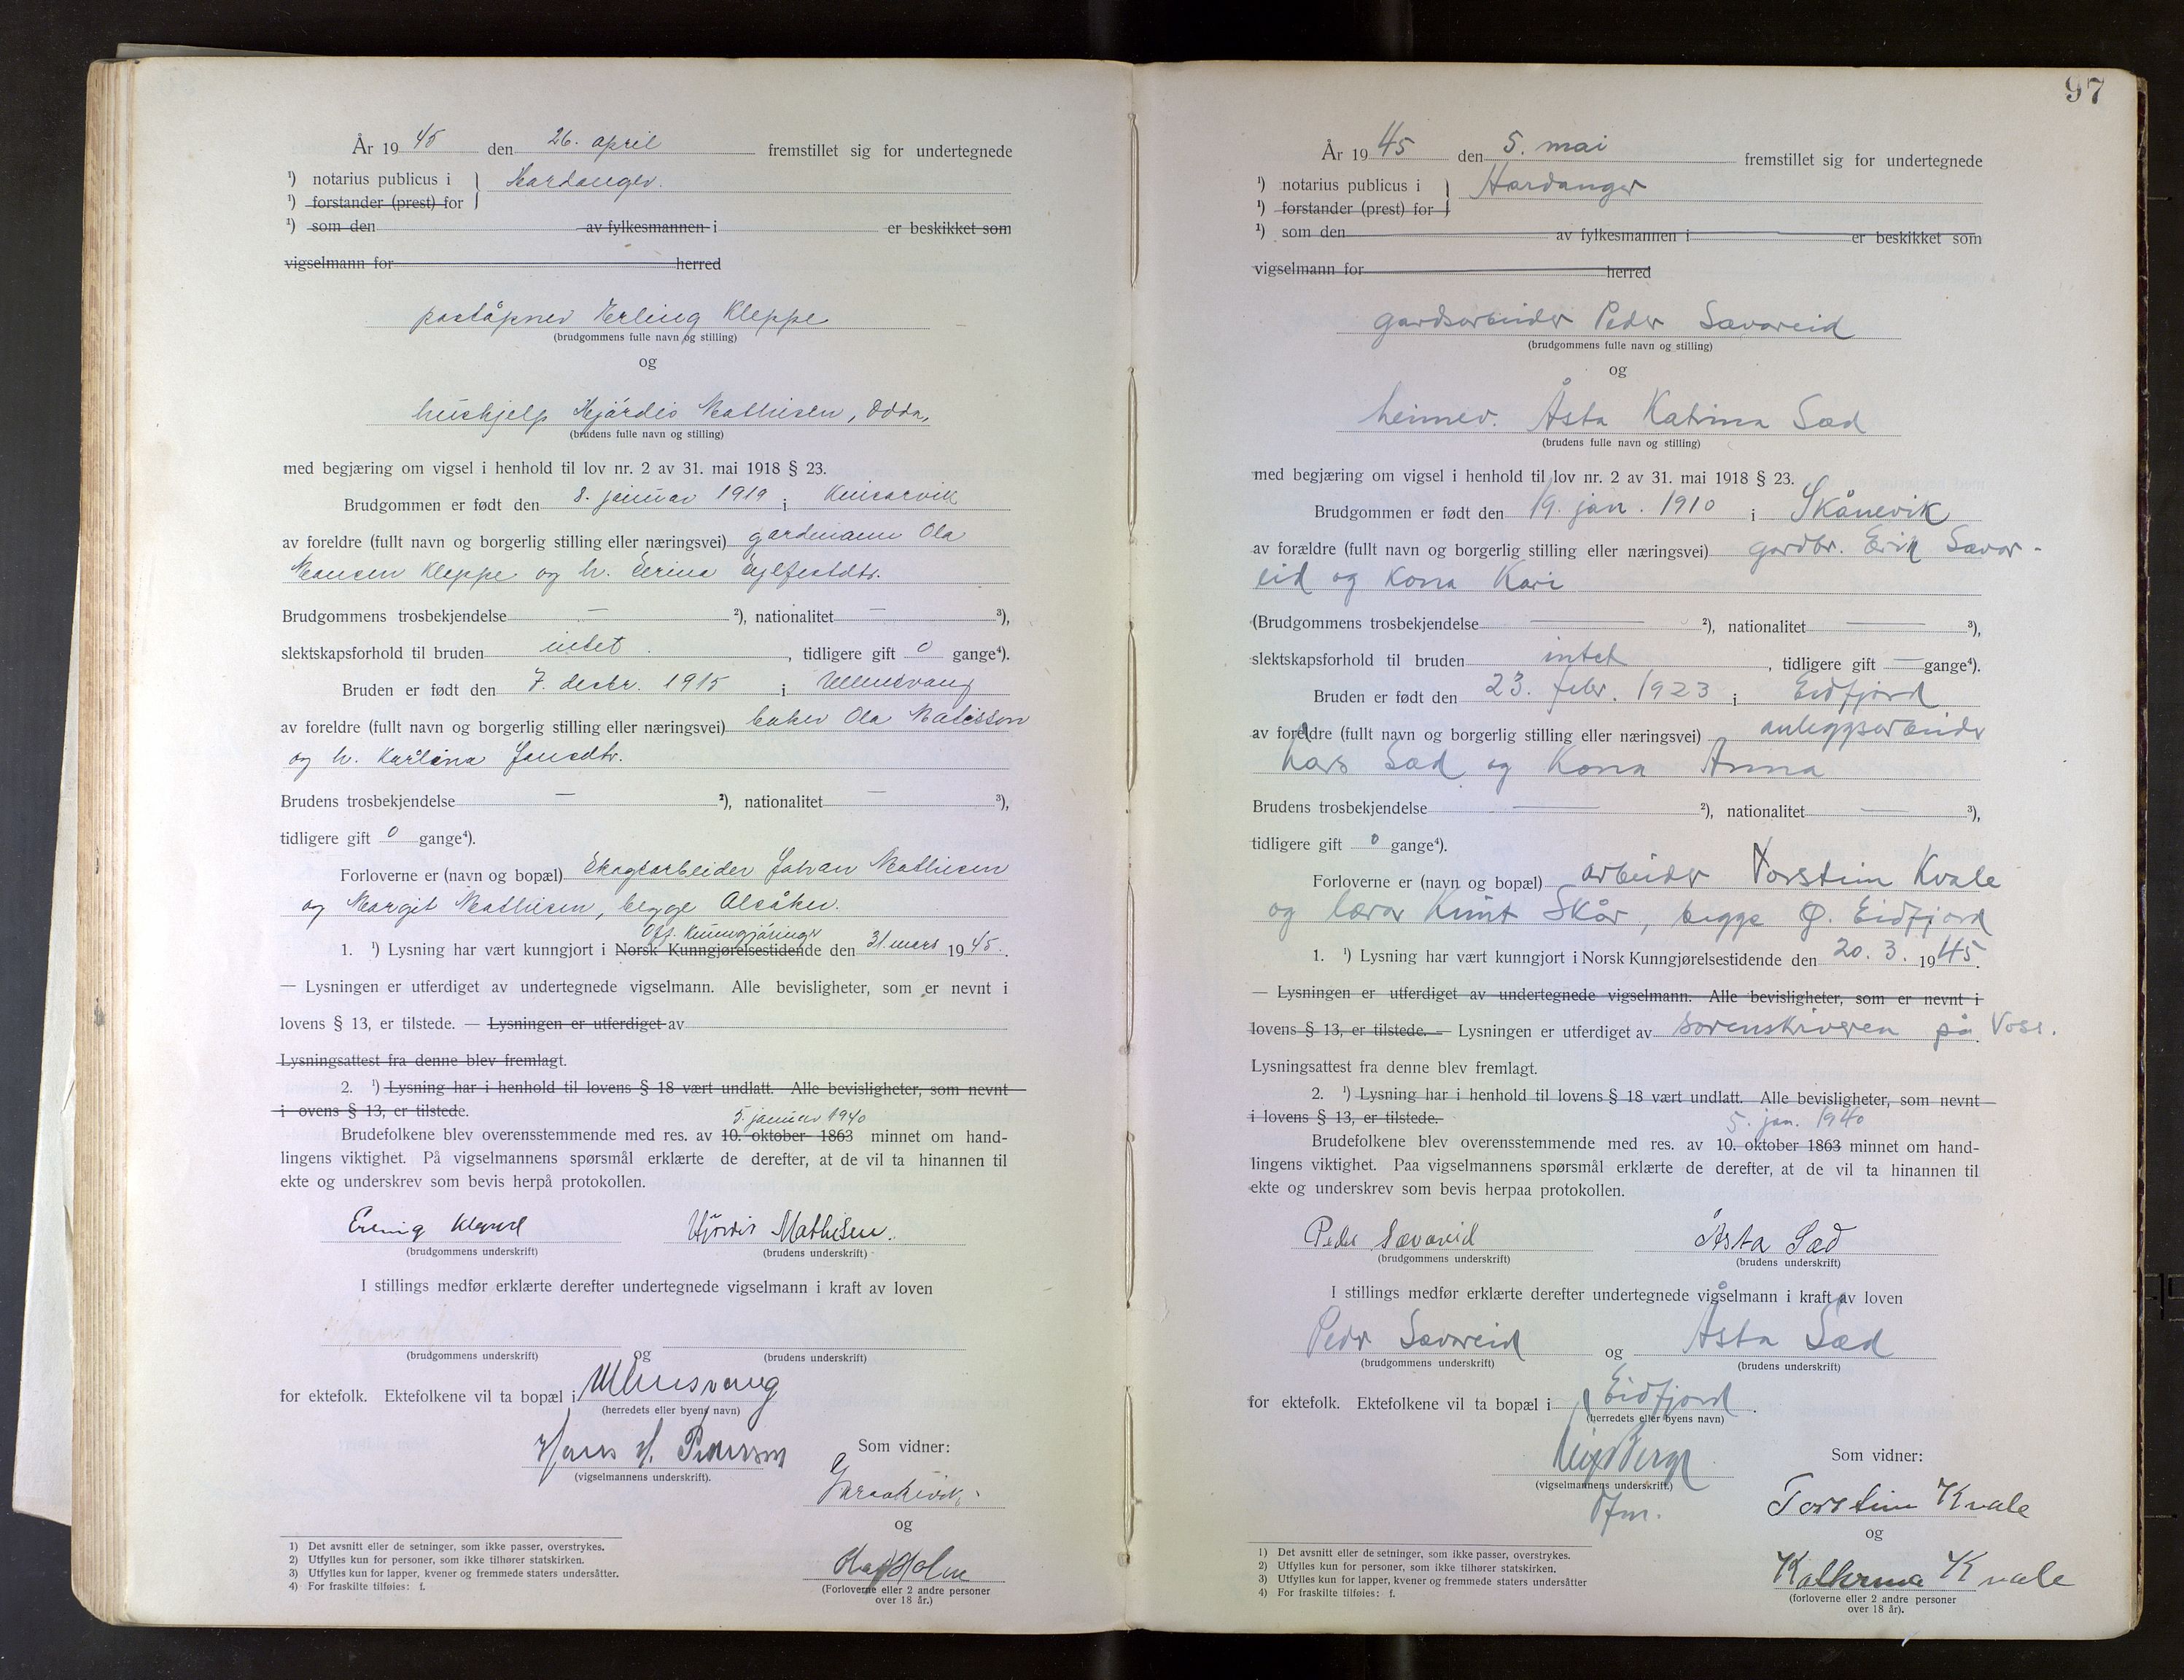 År 1945 den 26. april fremstillet sig for undertegnede
¹) notarius publicus i } Hardanger.
¹) forstander (prest) for
¹) som den av fylkesmannen i er beskikket som
vigselmann for herred
poståpner Erling Kleppe
(brudgommens fulle navn og stilling)
og
hushjelp Hjördis Mathisen, Odda,
(brudens fulle navn og stilling)
med begjæring om vigsel i henhold til lov nr. 2 av 31. mai 1918 § 23.
Brudgommen er født den 8. januar 1919 i Kinsarvik
av foreldre (fullt navn og borgerlig stilling eller næringsvei) gardmann Ola
Monsen Kleppe og h. Serina
Brudgommens trosbekjendelse — ²), nationalitet — ³),
slektskapsforhold til bruden intet. , tidligere gift 0 gange⁴).
Bruden er født den 7. decbr. 1915 i Ullensvang
av foreldre (fullt navn og borgerlig stilling eller næringsvei) baker Ola
og h. Karlina Jonsdtr.
Brudens trosbekjendelse — ²), nationalitet — ³),
tidligere gift 0 gange⁴).
Forloverne er (navn og bopæl) Skogsarbeider Johan Mathisen
og Margit Mathisen, begge Alsåker.
Off. Kunngjøringer
1. ¹) Lysning har vært kunngjort i Norsk Kunngjørelsestidende den 31. mars 1945.
— Lysningen er utferdiget av undertegnede vigselmann. Alle bevisligheter, som er nevnt i
lovens § 13, er tilstede. — Lysningen er utferdiget av
Lysningsattest fra denne blev fremlagt.
2. ¹) Lysning har i henhold til lovens § 18 vært undlatt. Alle bevisligheter, som nevnt
i ovens § 13, er tilstede.
5. januar 1940
Brudefolkene blev overensstemmende med res. av 10. oktober 1863 minnet om hand-
lingens viktighet. På vigselmannens spørsmål erklærte de derefter, at de vil ta hinannen til
ekte og underskrev som bevis herpå protokollen.
Erling Kleppe Hjördis Mathisen.
(brudgommens underskrift) (brudens underskrift)
I stillings medfør erklærte derefter undertegnede vigselmann i kraft av loven
og
(brudgommens underskrift) (brudens underskrift)
for ektefolk. Ektefolkene vil ta bopæl i Ullensvang
(herredets eller byens navn)
Hans H.
(vigselmannens underskrift).
Som vidner:
og
Holm
(Forloverne eller 2 andre personer
over 18 år.)
1) Det avsnitt eller de setninger, som ikke passer, overstrykes.
2) Utfylles kun for personer, som ikke tilhører statskirken.
3) Utfylles kun for lapper, kvener og fremmede staters undersåtter.
4) For fraskilte tilføies: f.
97
År 1945 den 5. mai fremstillet sig for undertegnede
¹) notarius publicus i } Hardanger
¹) forstander (prest) for
¹) som den av fylkesmannen i er beskikket som
vigselmann for herred
gardsarbeider Peder Sævareid
(brudgommens fulle navn og stilling)
og
heimev. Åsta Katrina Sæd
(brudens fulle navn og stilling)
med begjæring om vigsel i henhold til lov nr. 2 av 31. mai 1918 § 23.
Brudgommen er født den 19. jan. 1910 i Skånevik
av forældre (fullt navn og borgerlig stilling eller næringsvei) gardbr. Erik Sævar-
eid og kona Kari
(Brudgommens trosbekjendelse — ²), nationalitet — ³),
slektskapsforhold til bruden intet , tidligere gift — gange⁴).
Bruden er født den 23. febr. 1923 i Eidfjord
av foreldre (fullt navn og borgerlig stilling eller næringsvei) anleggsarbeider
Lars Sæd og kona Anna
Brudens trosbekjendelse — ²), nationalitet — ³),
tidligere gift 0 gange⁴).
Forloverne er (navn og bopæl) arbeider Torstein Kvale
og lærar Knut Skår, begge Ø. Eidfjord
1. ¹) Lysning har vært kunngjort i Norsk Kunngjørelsestidende den 20. 3. 1945.
— Lysningen er utferdiget av undertegnede vigselmann. Alle bevisligheter, som er nevnt i
lovens § 13, er tilstede. — Lysningen er utferdiget av sorenskriveren på Voss.
Lysningsattest fra denne blev fremlagt.
2. ¹) Lysning har i henhold til lovens § 18 vært undlatt. Alle bevisligheter, som nevnt
i lovens § 13, er tilstede.
5. jan. 1940
Brudefolkene blev overensstemmende med res. av 10. oktober 1863 minnet om hand-
lingens viktighet. Paa vigselmannens spørsmål erklærte de derefter, at de vil ta hinannen til
ekte og underskrev som bevis herpaa protokollen.
Peder Sævareid Åsta Sæd
(brudgommens underskrift) (brudens underskrift)
I stillings medfør erklærte derefter undertegnede vigselmann i kraft av loven
Peder Sævareid og Åsta Sæd
(brudgommens underskrift) (brudens underskrift)
for ektefolk. Ektefolkene vil ta bopæl i Eidfjord.
(herredets eller byens navn)
(vigselmannens underskrift.)
Som vidner:
Torstein Kvale
og
Katherina Kvale
(forloverne eller 2 andre personer
over 18 år).
1) Det avsnitt eller de setninger, som ikke passer, overstrykes.
2) Utfylles kun for personer, som ikke tilhører statskirken.
3) Utfylles kun for lapper, kvener og fremmede staters undersåtter
4) For fraskilte tilføies: f.